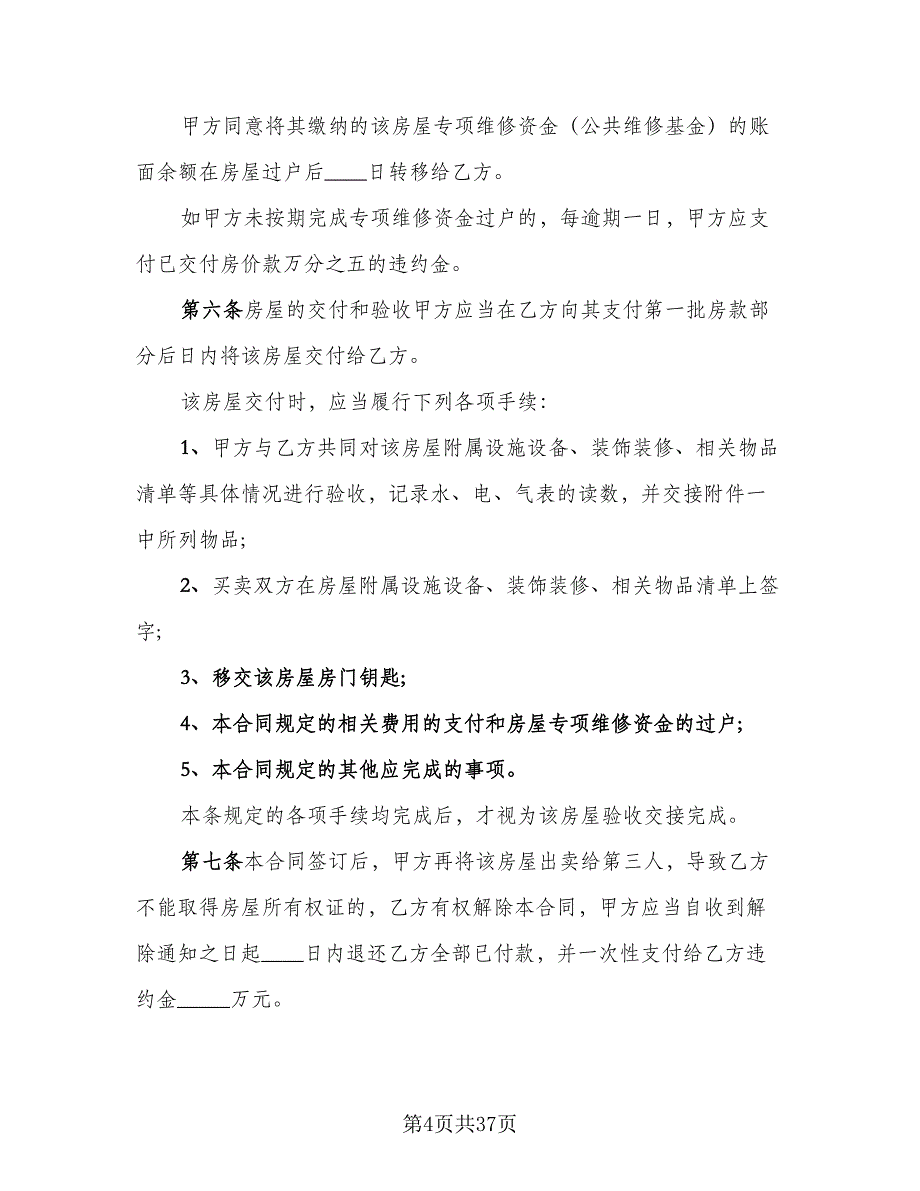 甲方同意将其缴纳的该房屋专项维修资金（公共维修基金）的账
面余额在房屋过户后____日转移给乙方。
如甲方未按期完成专项维修资金过户的，每逾期一日，甲方应支
付已交付房价款万分之五的违约金。
第六条房屋的交付和验收甲方应当在乙方向其支付第一批房款部
分后日内将该房屋交付给乙方。
该房屋交付时，应当履行下列各项手续：
1、甲方与乙方共同对该房屋附属设施设备、装饰装修、相关物品
清单等具体情况进行验收，记录水、电、气表的读数，并交接附件一
中所列物品;
2、买卖双方在房屋附属设施设备、装饰装修、相关物品清单上签
字;
3、移交该房屋房门钥匙;
4、本合同规定的相关费用的支付和房屋专项维修资金的过户;
5、本合同规定的其他应完成的事项。
本条规定的各项手续均完成后，才视为该房屋验收交接完成。
第七条本合同签订后，甲方再将该房屋出卖给第三人，导致乙方
不能取得房屋所有权证的，乙方有权解除本合同，甲方应当自收到解
除通知之日起____日内退还乙方全部已付款，并一次性支付给乙方违
约金_____万元。
第4页共37页